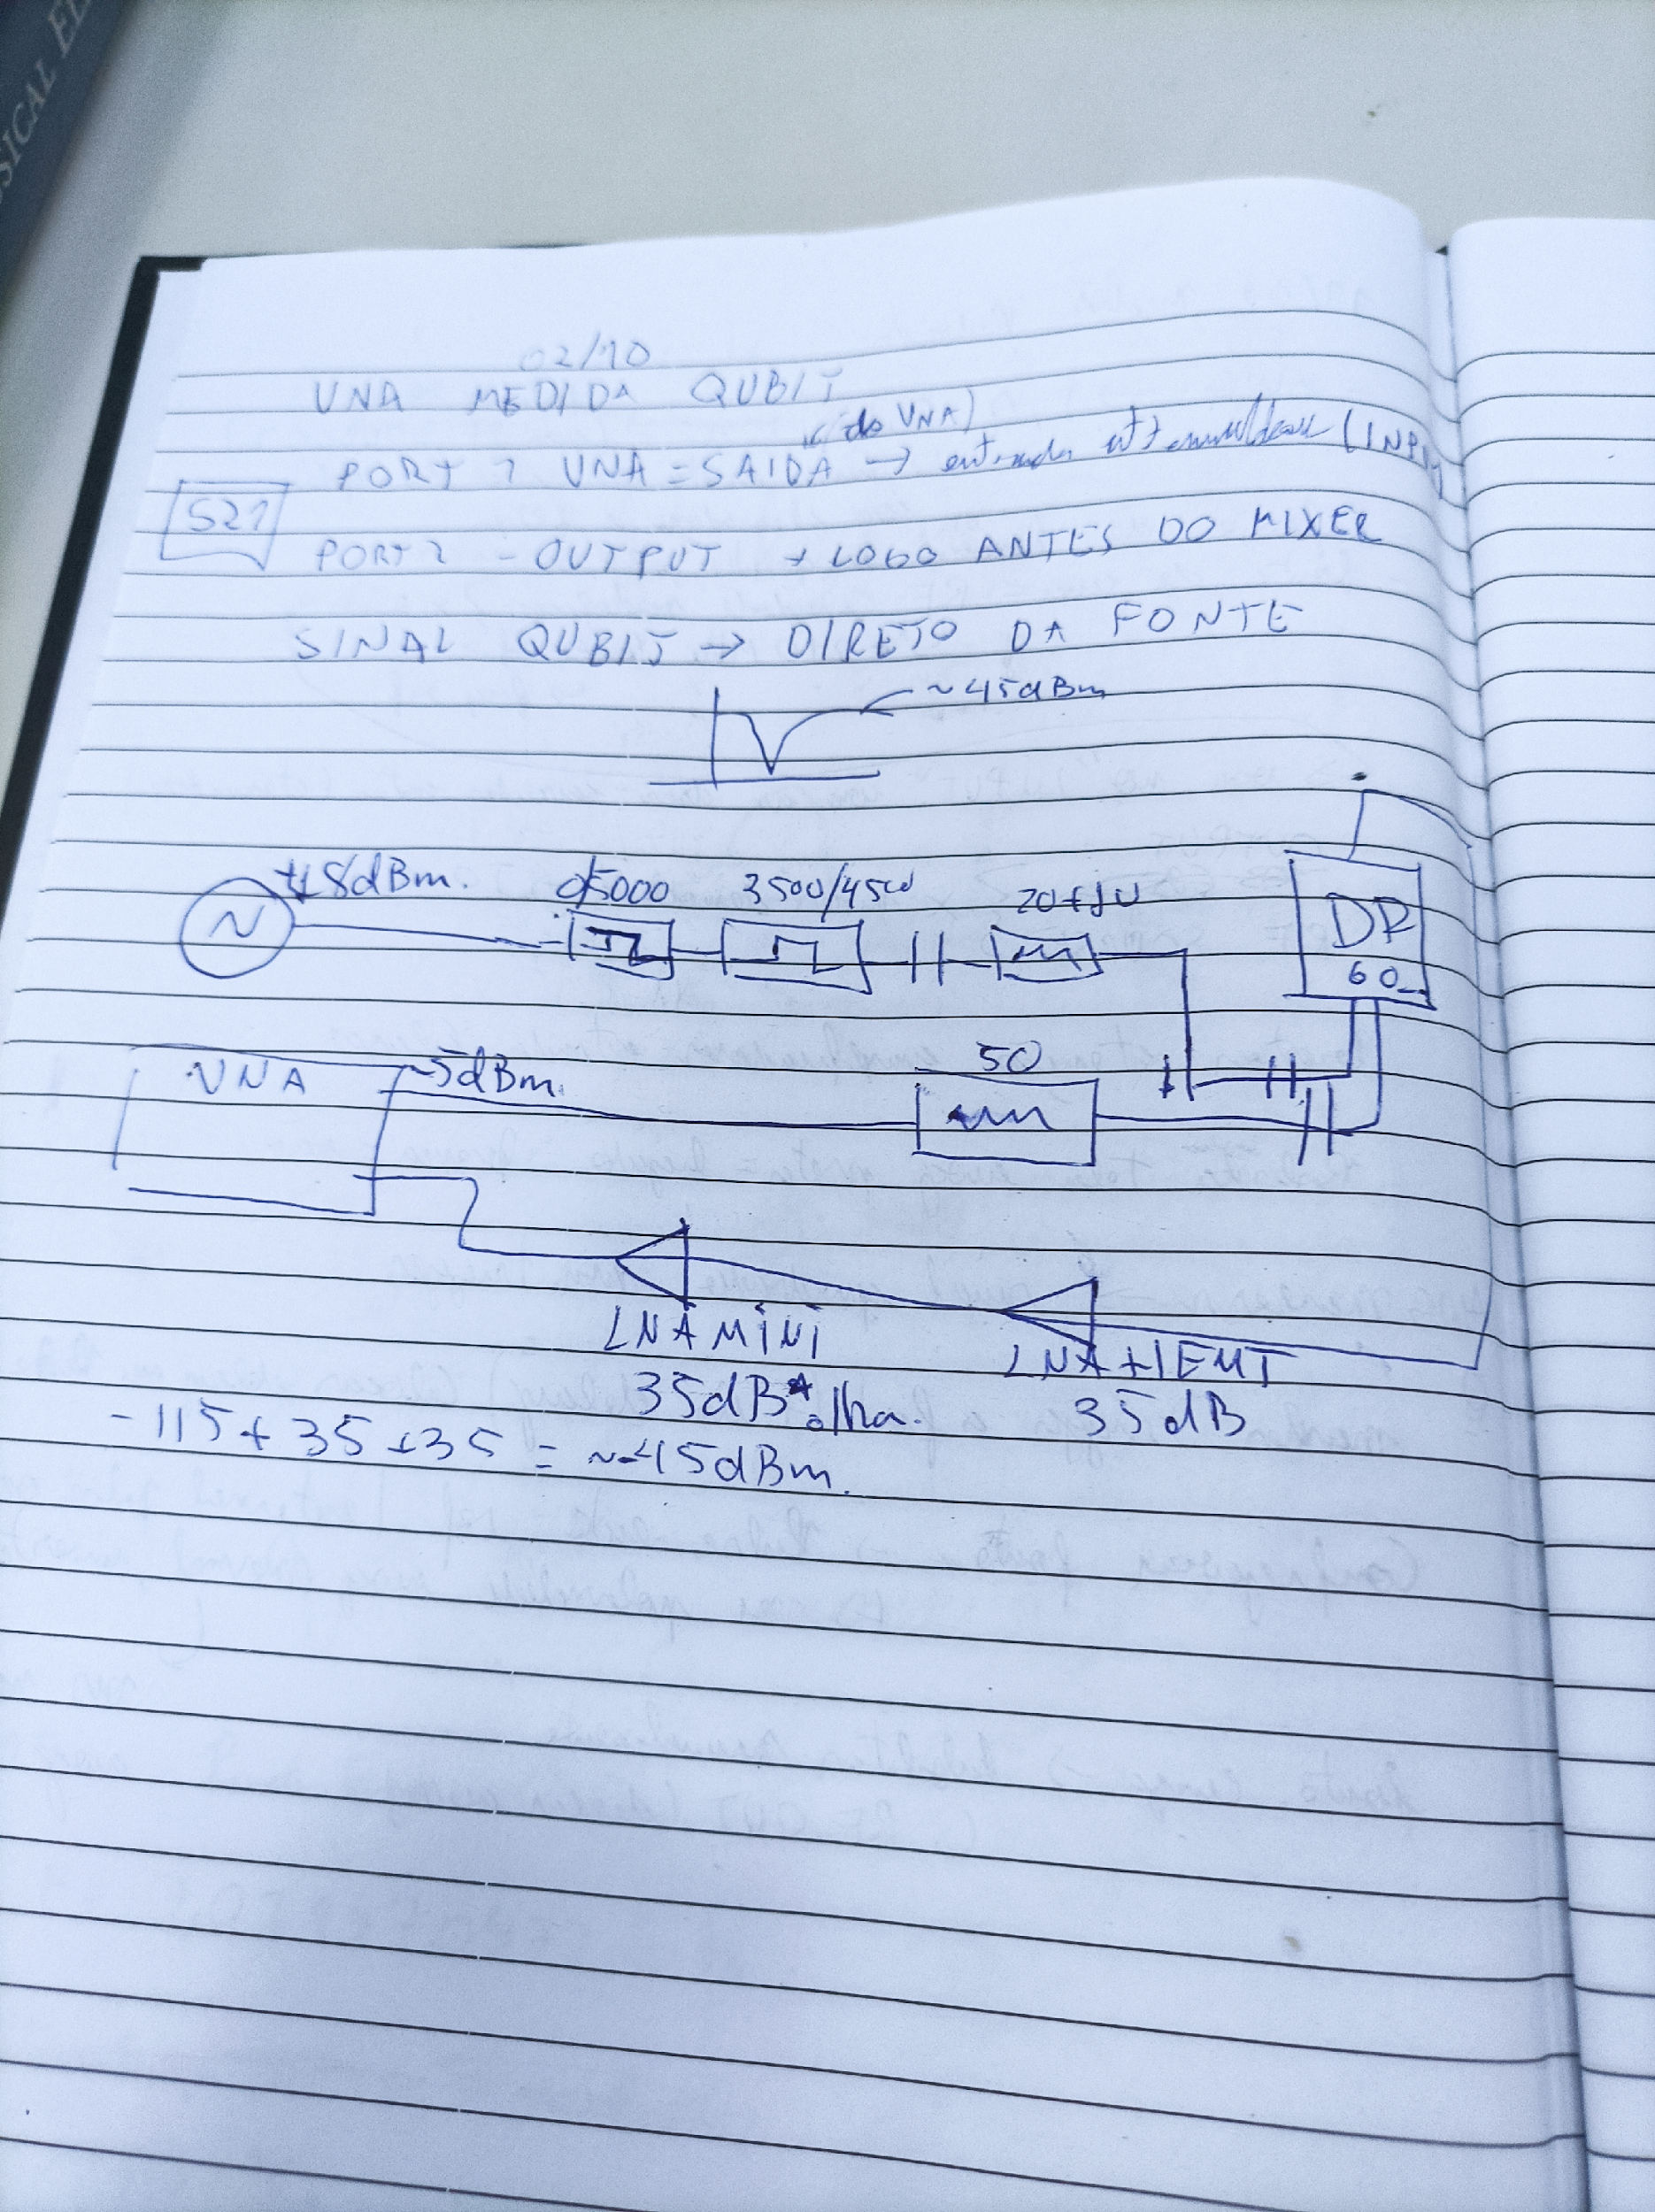 SICAL EL
02/10
VNA MEDIDA QUBIT
(do VNA)
PORT 1 VNA = SAIDA → entrada
S21
PORT 2 - OUTPUT → LOGO ANTES DO MIXER
SINAL QUBIT → DIRETO DA FONTE
~45dBm
18dBm. 0/5000 3500/4500 20+10
DR
60
VNA -5dBm. 50
LNA MINI LNA HEMT
35dB* olha. 35dB
-115+35+35 = ~-45dBm.